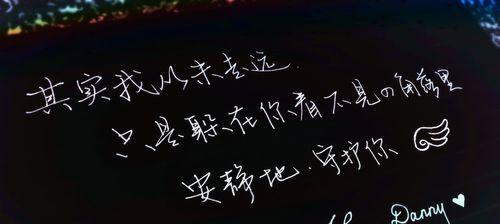 其实我从未走远.
只是躲在你看不见の角落里
安静地.守护你
Danny